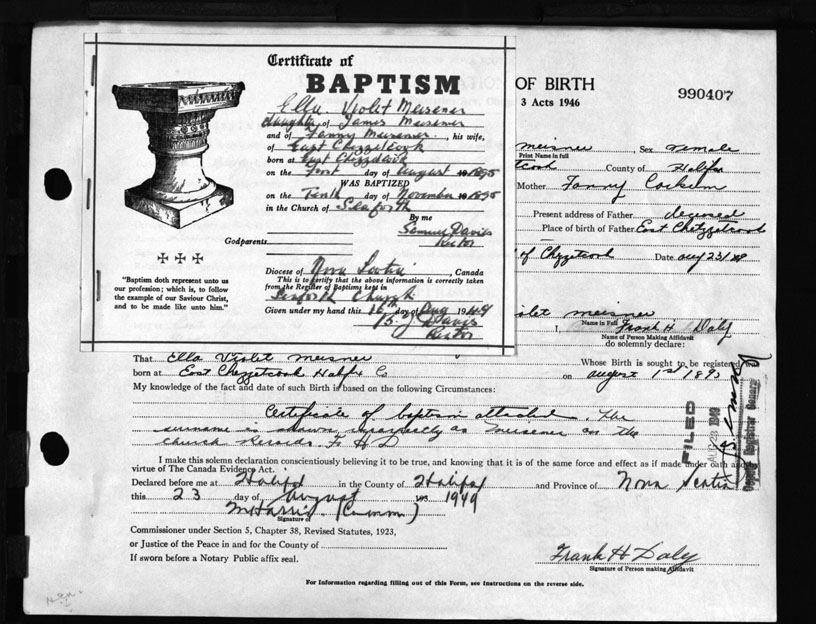 Certificate of
BAPTISM
Ella Violet Meisener
daughter of James Meisener
and of Fanny Meisener, his wife,
of East Chezzetcook
born at East Chezzetcook
on the First day of August 1895
WAS BAPTIZED
on the Tenth day of November 1895
in the Church of Seaforth
By me
Samuel Davis
Rector
Godparents
Diocese of Nova Scotia, Canada
This is to certify that the above information is correctly taken
from the Register of Baptisms kept in
Seaforth Church
Given under my hand this day of Aug 1949
Davis
Rector
"Baptism doth represent unto us
our profession; which is, to follow
the example of our Saviour Christ,
and to be made like unto him."
OF BIRTH
3 Acts 1946
990407
meisner Sex Female
Print Name in full
County of Halifax
Mother Fanny
Present address of Father deceased
Place of birth of Father East Chezzetcook
of Chezzetcook Date Aug 23/
meisner
Name in Full
I, Frank H Daly
Name of Person Making Affidavit
do solemnly declare:
That Ella Violet meisner Whose Birth is sought to be registered
born at East Chezzetcook Halifx Co on august 1st 1895
My knowledge of the fact and date of such Birth is based on the following Circumstances:
Certificate of baptism attached. The
surname is shown as meisener on the
Church Records. F H D
FILED
AUG 23 1949
Deputy Registrar General
I make this solemn declaration conscientiously believing it to be true, and knowing that it is of the same force and effect as if made under oath and by
virtue of The Canada Evidence Act.
Declared before me at Halifax in the County of Halifax and Province of Nova Scotia
this 23 day of August 1949
M Harris
Signature of
Commissioner under Section 5, Chapter 38, Revised Statutes, 1923,
or Justice of the Peace in and for the County of
If sworn before a Notary Public affix seal.
Frank H Daly
Signature of Person making Affidavit
For Information regarding filling out of this Form, see Instructions on the reverse side.